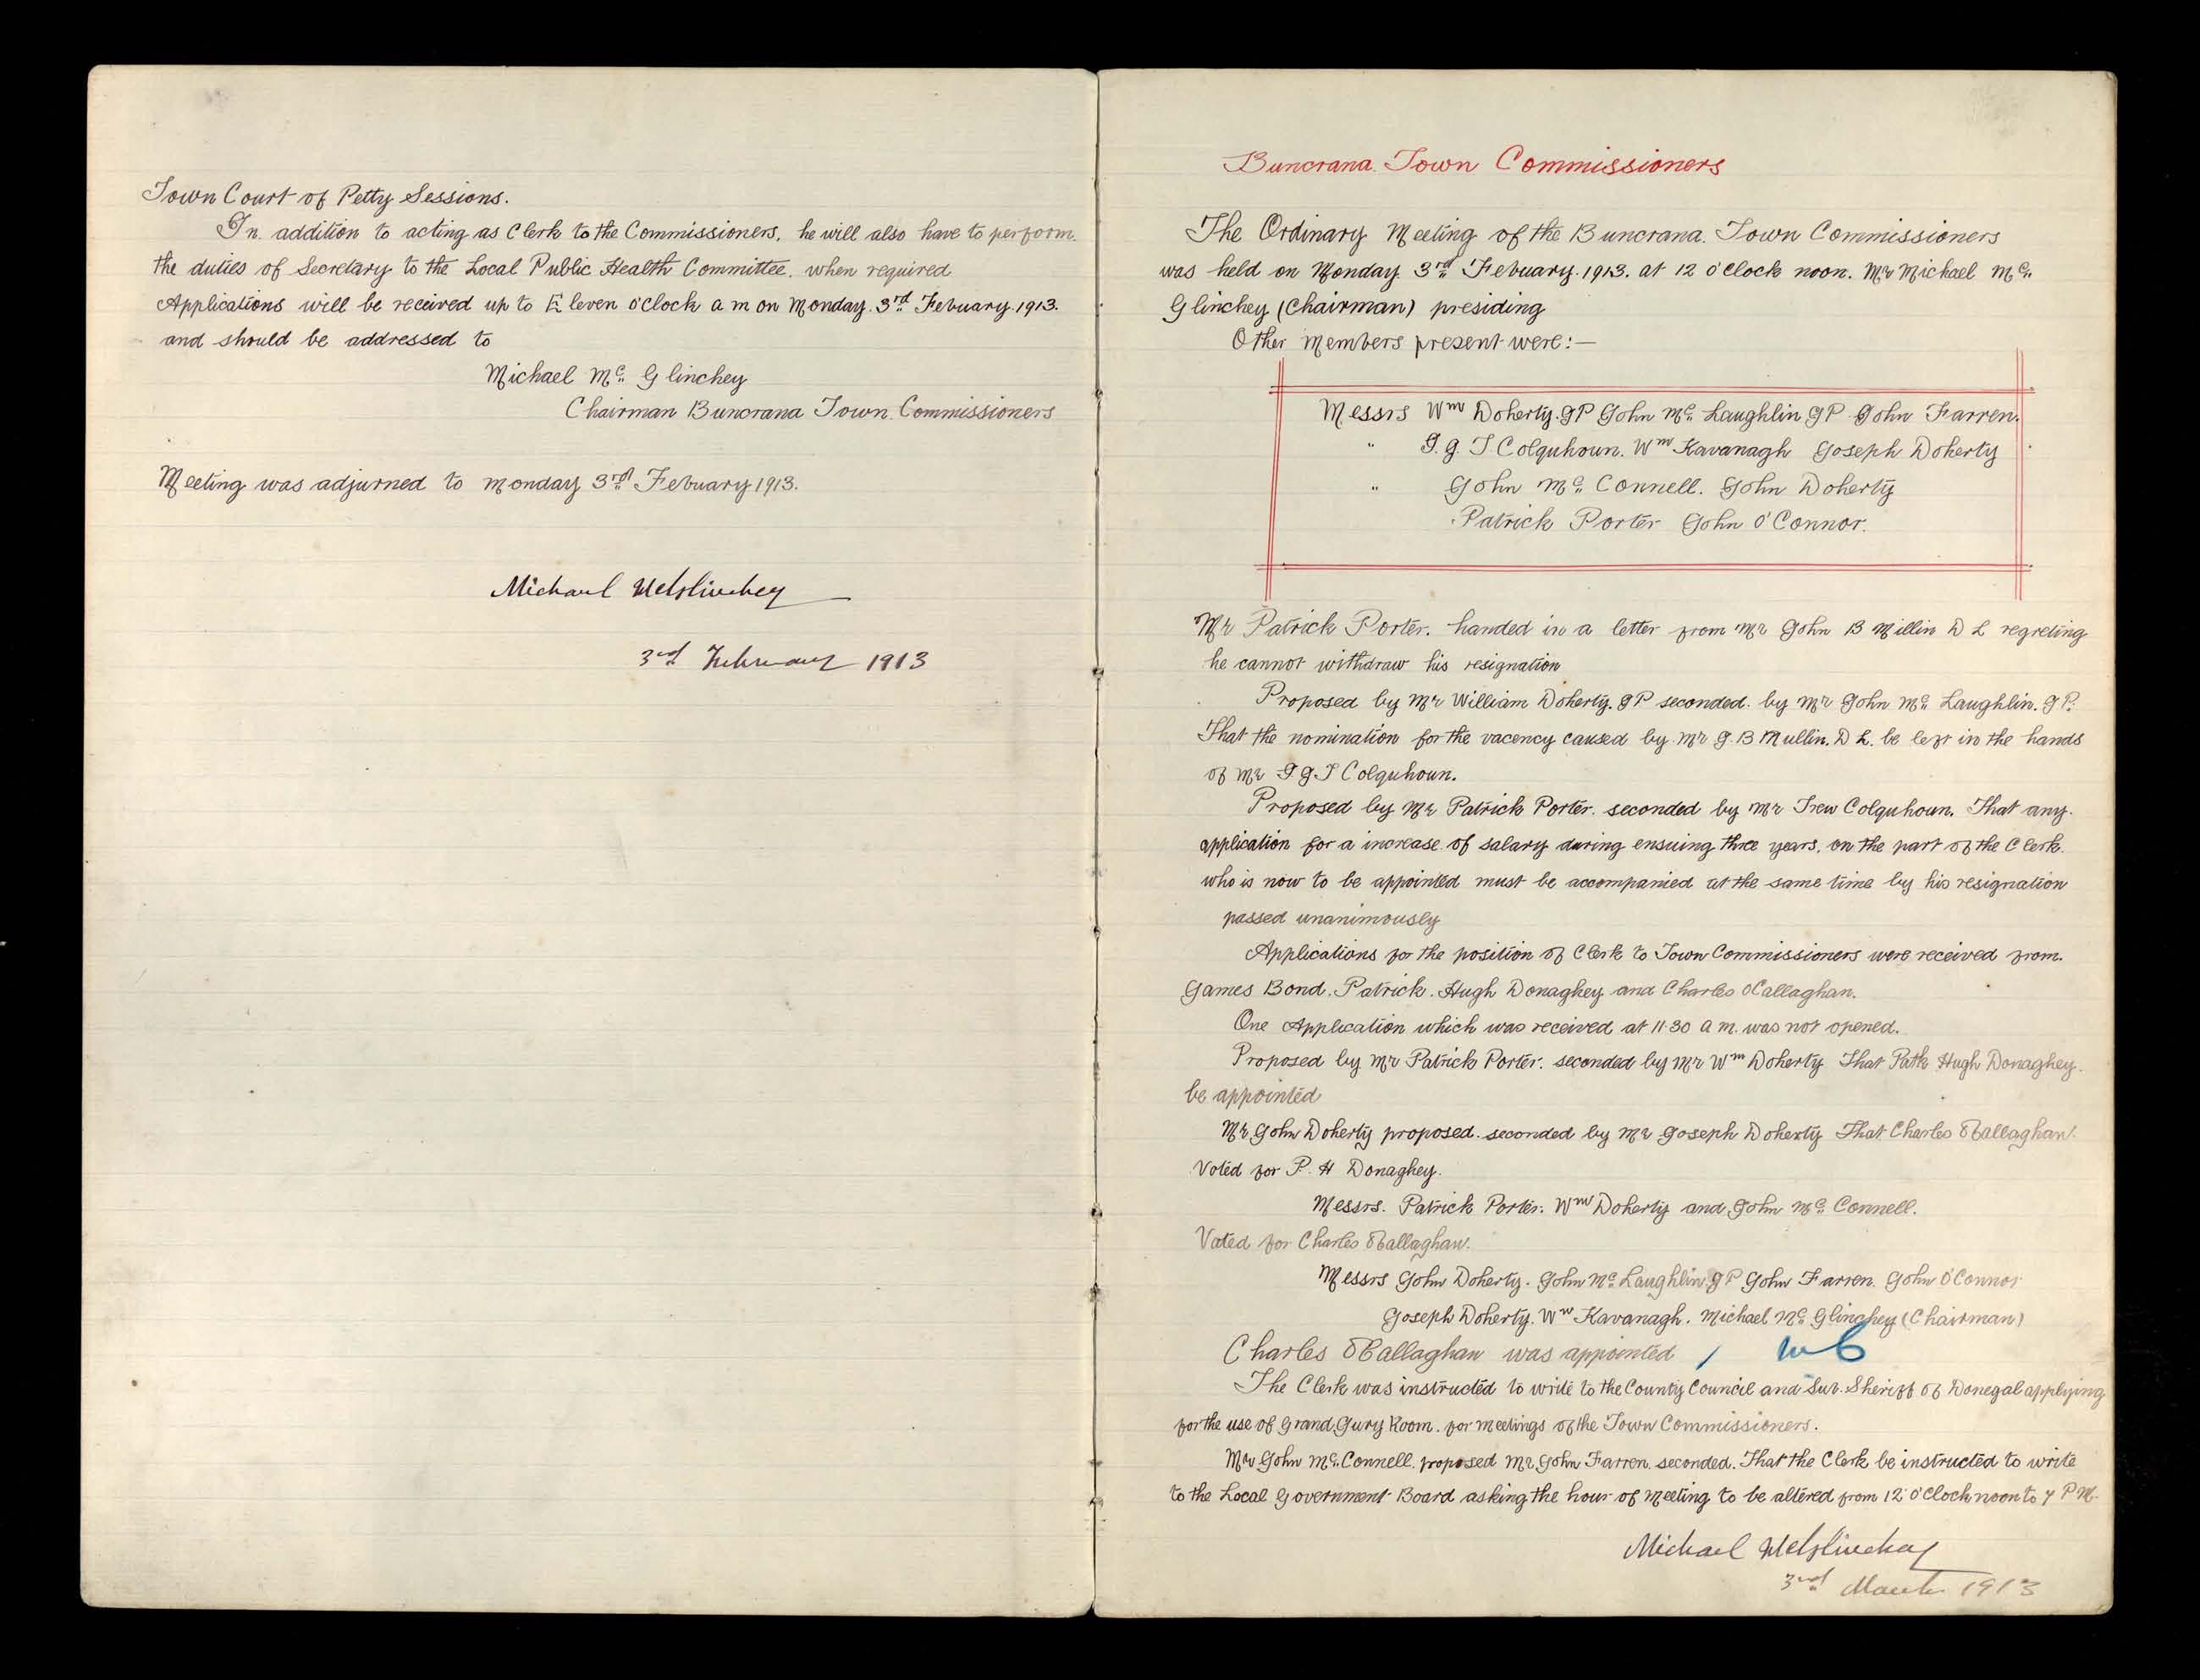 Town Court of Petty Sessions.
In addition to acting as Clerk to the Commissioners, he will also have to perform
the duties of Secretary to the Local Public Health Committee. when required
Applications will be received up to Eleven o'Clock a m on Monday. 3rd Febuary. 1913.
and should be addressed to
Michael Mc Glinchey
Chairman Buncrana Town Commissioners
Meeting was adjurned to Monday 3rd Febuary 1913.
Michael McGlinchey
3rd February 1913
Buncrana Town Commissioners
The Ordinary Meeting of the Buncrana Town Commissioners
was held on Monday 3rd Febuary. 1913. at 12 o'Clock noon. Mr Michael Mc
Glinchey (Chairman) presiding
Other Members present were:—
Messrs Wm Doherty. JP John Mc Laughlin JP John Farren.
" I. J. T Colquhoun. Wm Kavanagh Joseph Doherty
" John Mc Connell. John Doherty
Patrick Porter John O'Connor.
Mr Patrick Porter. handed in a letter from Mr John B Millin D L regreting
he cannot withdraw his resignation
Proposed by Mr William Doherty. JP seconded by Mr John Mc Laughlin. JP.
That the nomination for the vacency caused by Mr J. B Mullin. D L. be left in the hands
of Mr I J. T Colquhoun.
Proposed by Mr Patrick Porter. seconded by Mr Trew Colquhoun. That any
application for a increase of salary during ensuing three years, on the part of the Clerk
who is now to be appointed must be accompanied at the same time by his resignation
passed unanimously
Applications for the position of Clerk to Town Commissioners were received from.
James Bond. Patrick. Hugh Donaghey and Charles OCallaghan.
One Application which was received at 11.30 a m. was not opened.
Proposed by Mr Patrick Porter. seconded by Mr Wm Doherty That Patk Hugh Donaghey.
be appointed
Mr John Doherty proposed. seconded by Mr Joseph Doherty That Charles OCallaghan.
Voted for P. H Donaghey.
Messrs. Patrick Porter. Wm Doherty and John Mc Connell.
Voted for Charles OCallaghan.
Messrs John Doherty. John Mc Laughlin JP John Farren. John O'Connor
Joseph Doherty. Wm Kavanagh. Michael Mc Glinchey (Chairman)
Charles OCallaghan was appointed
The Clerk was instructed to write to the County Council and Sub. Sheriff of Donegal applying
for the use of Grand Jury Room. for meetings of the Town Commissioners.
Mr John Mc Connell. proposed Mr John Farren. seconded. That the Clerk be instructed to write
to the Local Government Board asking the hour of Meeting to be altered from 12 o'Clock noon to 7 P M.
Michael McGlinchey
3rd March 1913